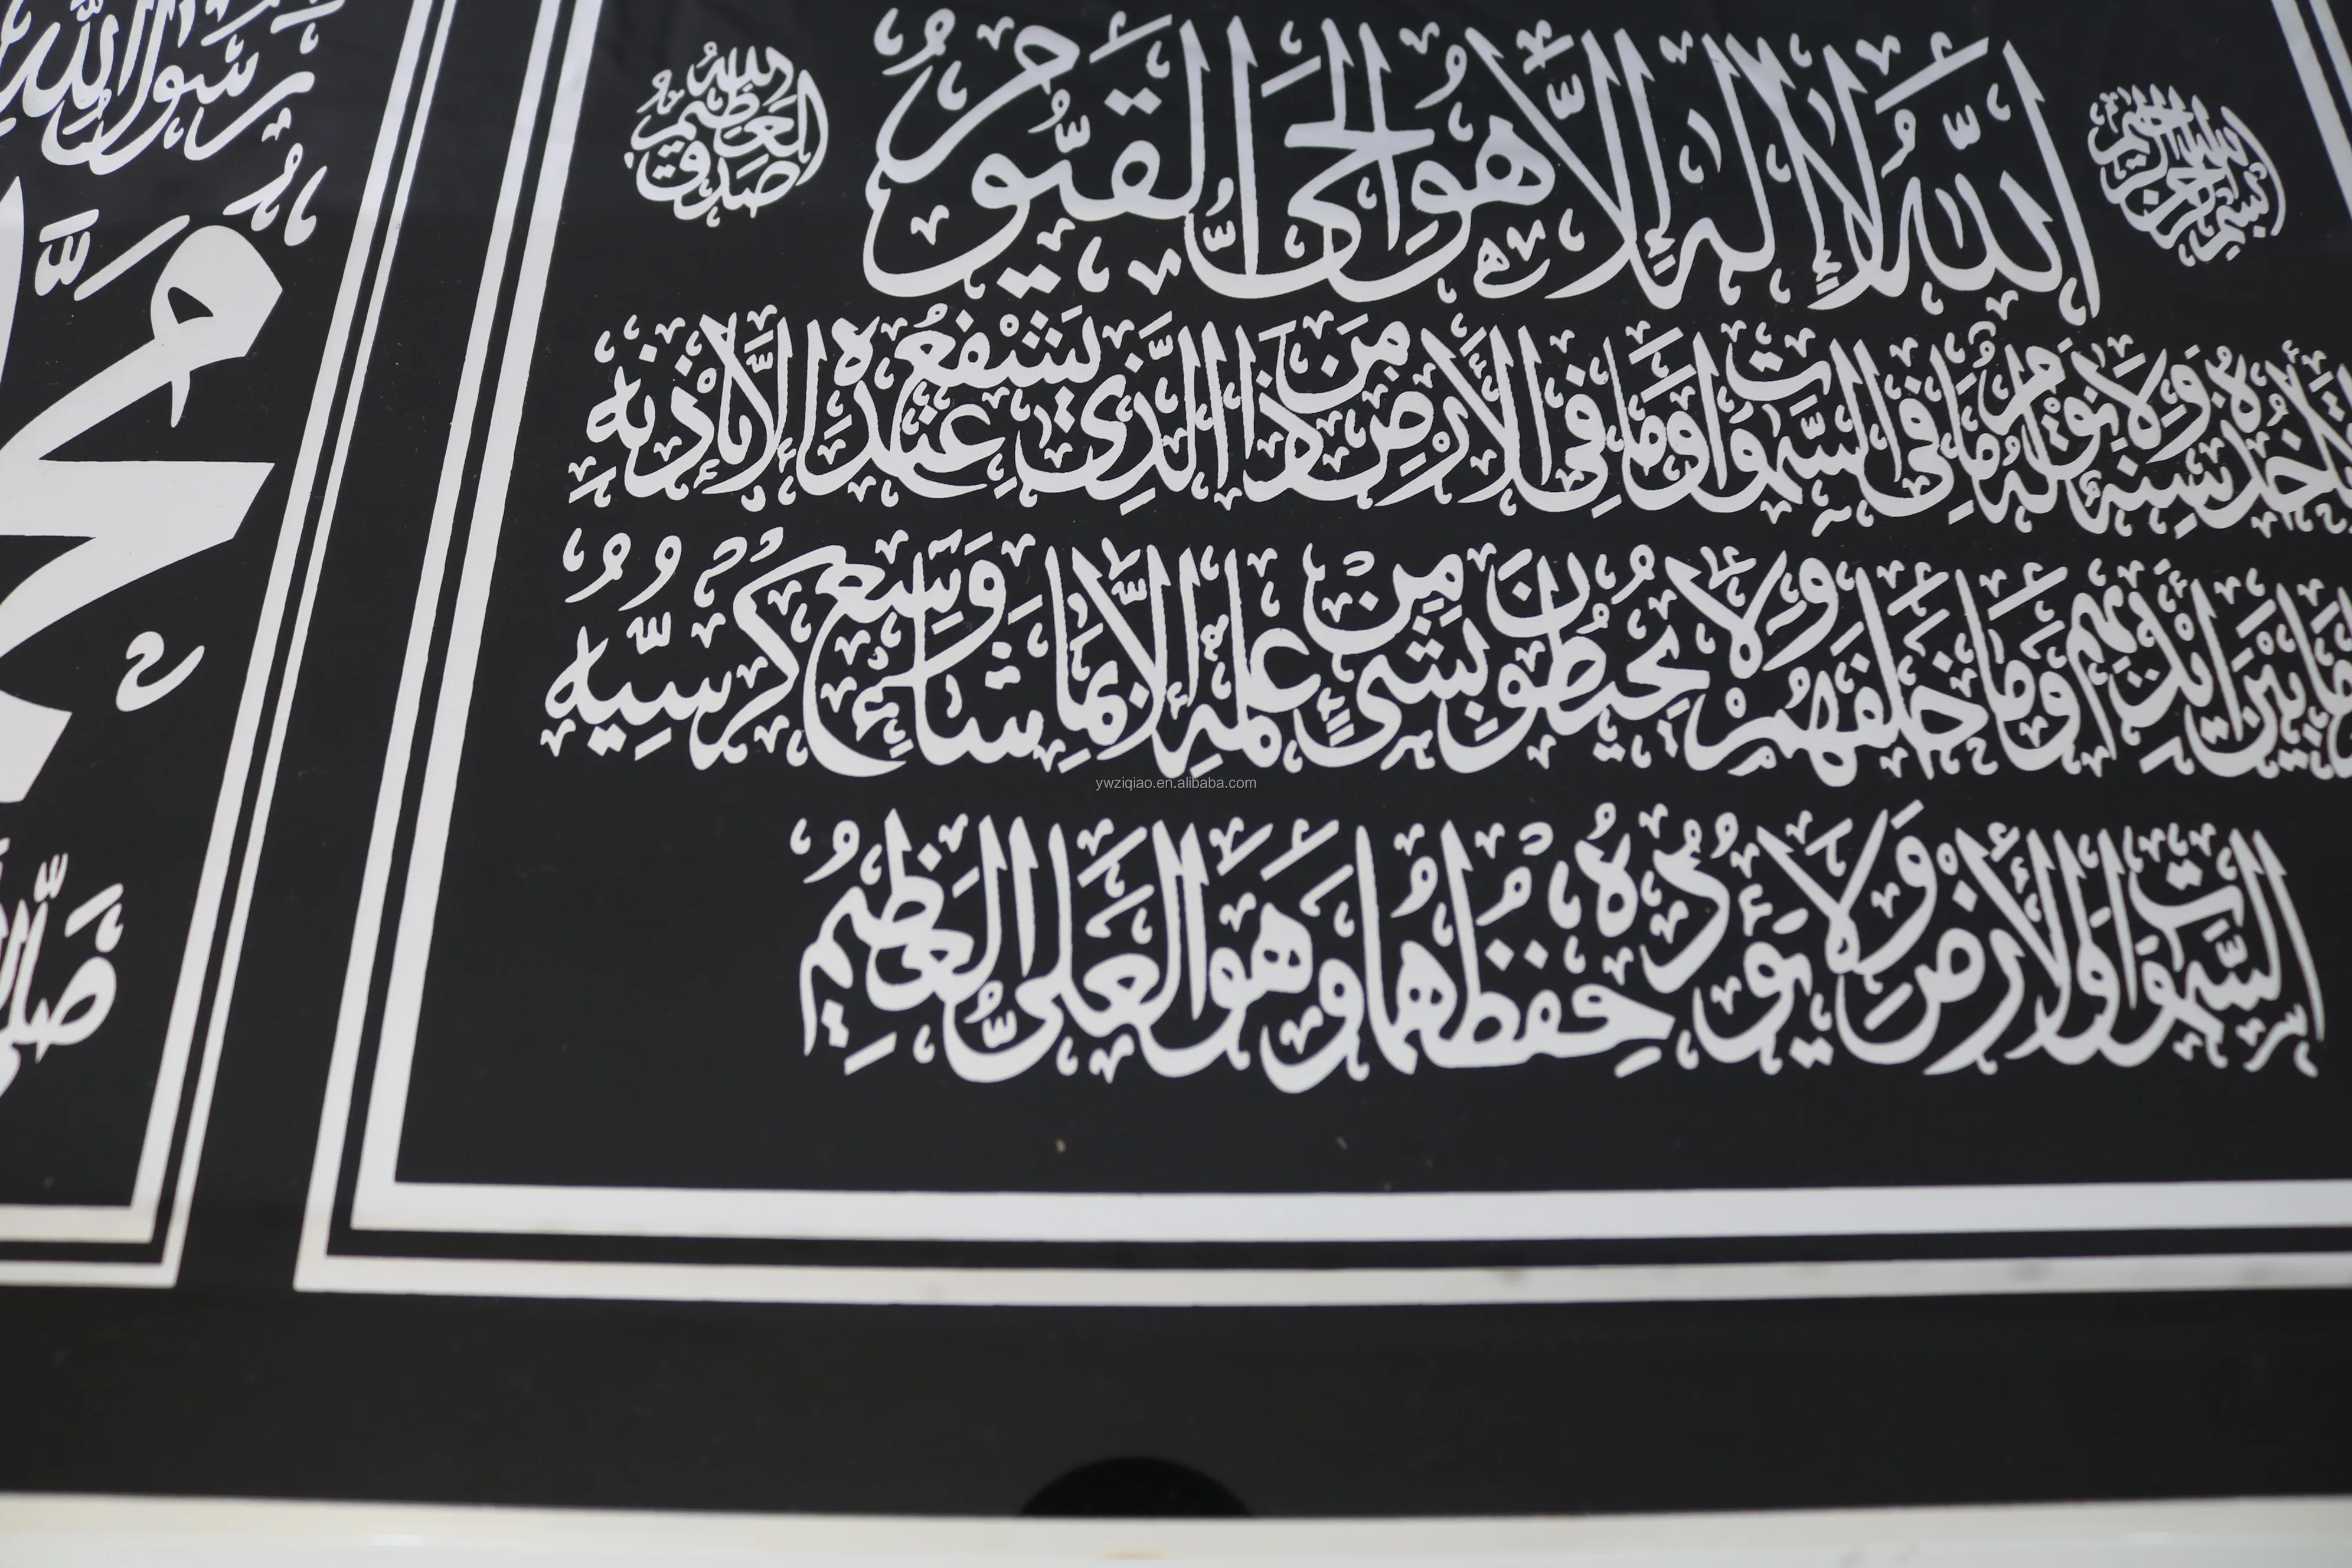 بسم الله الرحمن الرحيم
اَللّٰهُ لَا إِلٰهَ إِلَّا هُوَ الْحَيُّ الْقَيُّومُ
صدق الله العظيم
تَأْخُذُهُ سِنَةٌ وَلَا نَوْمٌ لَهُ مَا فِي السَّمٰوَاتِ وَمَا فِي الْأَرْضِ مَنْ ذَا الَّذِي يَشْفَعُ عِنْدَهُ إِلَّا بِإِذْنِهِ
مَا بَيْنَ أَيْدِيهِمْ وَمَا خَلْفَهُمْ وَلَا يُحِيطُونَ بِشَيْءٍ مِنْ عِلْمِهِ إِلَّا بِمَا شَاءَ وَسِعَ كُرْسِيُّهُ
السَّمٰوَاتِ وَالْأَرْضَ وَلَا يَؤُدُهُ حِفْظُهُمَا وَهُوَ الْعَلِيُّ الْعَظِيمُ
رسول الله
ywziqiao.en.alibaba.com